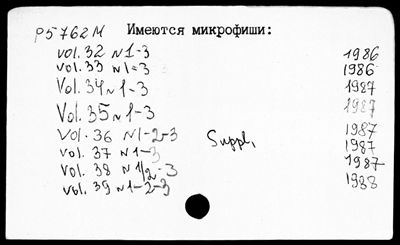 P5762M Имеются микрофиши:
vol. 32 N1-3 1986
vol. 33 N1-3 1986
Vol. 34 N1-3 1987
Vol. 35 N1-3 1987
Vol. 36 N1-2-3 Suppl. 1987
vol. 37 N1-3 1987
vol. 38 N1/2-3 1987
vol. 39 N1-2-3 1988